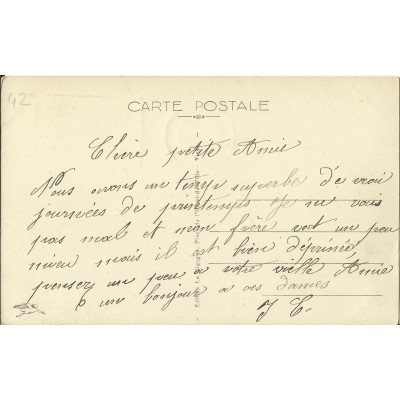 42
CARTE POSTALE
Chère petite Amie
Nous avons un temps superbe de vrai
journées de printemps je ne vais
pas mal et mon frère vait un peu
mieu mais il est bien déprimée,
pensez un peu a votre vielle Amie
un bonjour a ces dames